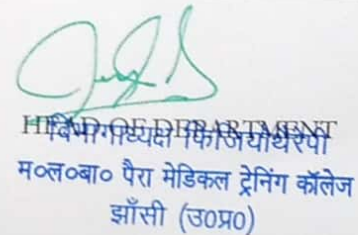 HEAD OF DEPARTMENT
विभागाध्यक्ष फिजियोथेरेपी
म०ल०बा० पैरा मेडिकल ट्रेनिंग कॉलेज
झाँसी (उ०प्र०)